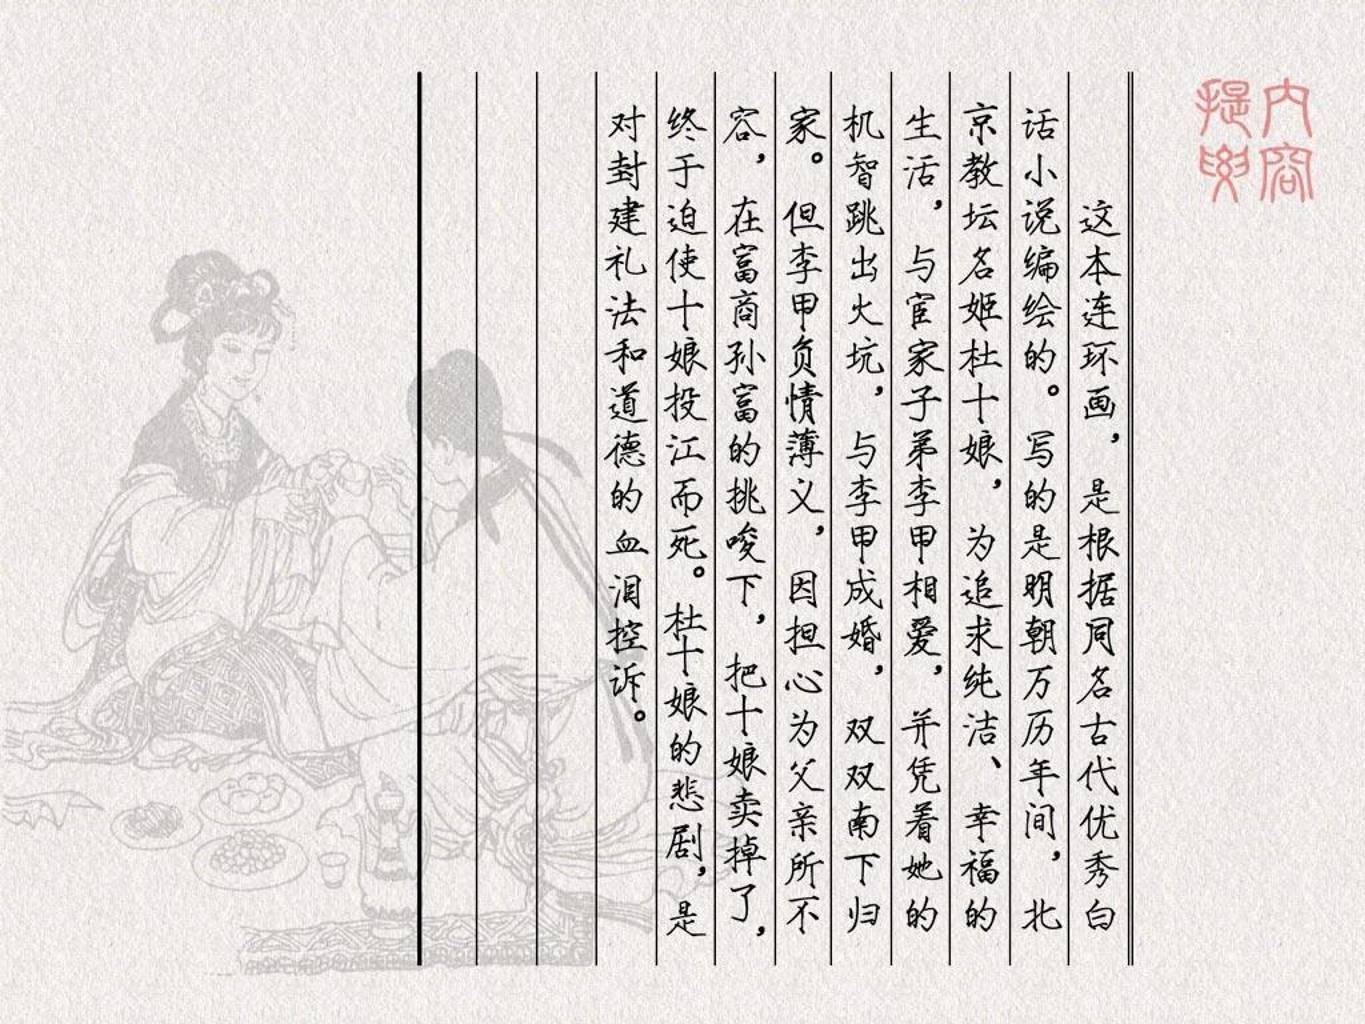 内容
提要
这本连环画，是根据同名古代优秀白
话小说编绘的。写的是明朝万历年间，北
京教坛名姬杜十娘，为追求纯洁、幸福的
生活，与宦家子弟李甲相爱，并凭着她的
机智跳出火坑，与李甲成婚，双双南下归
家。但李甲负情薄义，因担心为父亲所不
容，在富商孙富的挑唆下，把十娘卖掉了，
终于迫使十娘投江而死。杜十娘的悲剧，是
对封建礼法和道德的血泪控诉。